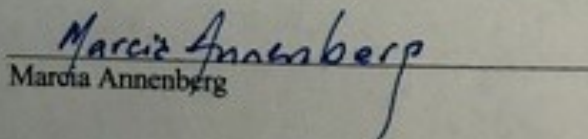 Marcia Annenberg
Marcia Annenberg